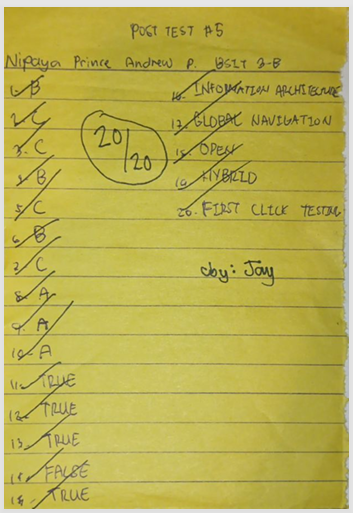 POST TEST #5
Nipaya Prince Andrew P. BSIT 3-B
1. B
2. C
3. C
4. B
5. C
6. B
7. C
8. A
9. A
10. A
11. TRUE
12. TRUE
13. TRUE
14. FALSE
15. TRUE
16. INFORMATION ARCHITECTURE
17. GLOBAL NAVIGATION
18. OPEN
19. HYBRID
20. FIRST CLICK TESTING
20/20
cby: Jay